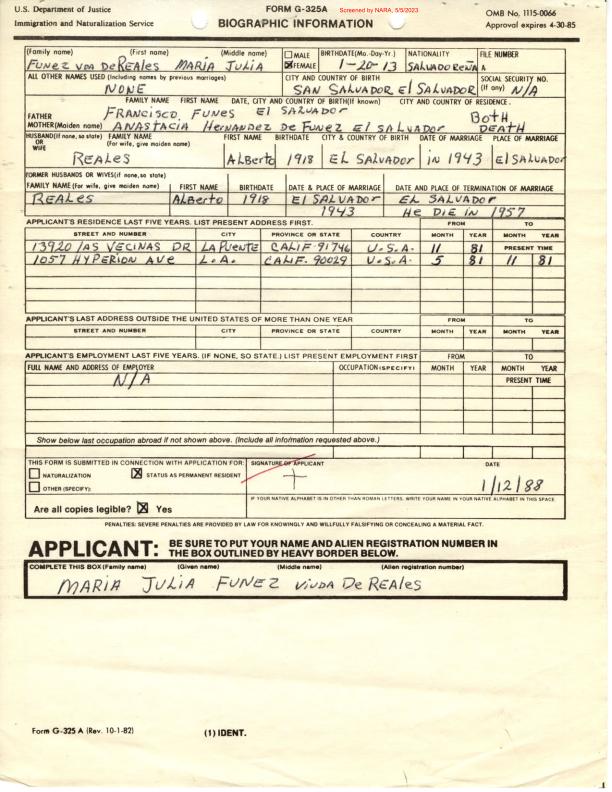 U.S. Department of Justice
Immigration and Naturalization Service
FORM G-325A
BIOGRAPHIC INFORMATION
Screened by NARA, 5/5/2023
OMB No. 1115-0066
Approval expires 4-30-85
(Family name) (First name) (Middle name) MALE BIRTHDATE(Mo.-Day-Yr.) NATIONALITY FILE NUMBER
FUNEZ VDA DeREALES MARIA JULIA X FEMALE 1-20-13 SALVADOREÑA A
ALL OTHER NAMES USED (Including names by previous marriages) CITY AND COUNTRY OF BIRTH SOCIAL SECURITY NO. (If any)
NONE SAN SALVADOR El SALVADOR N/A
FAMILY NAME FIRST NAME DATE, CITY AND COUNTRY OF BIRTH(If known) CITY AND COUNTRY OF RESIDENCE.
FATHER FRANCISCO, FUNES El SALVADOR Both
MOTHER(Maiden name) ANASTACIA HernANDEZ De FuNeZ El SALVADOR DEATH
HUSBAND(If none, so state) OR WIFE FAMILY NAME (For wife, give maiden name) FIRST NAME BIRTHDATE CITY & COUNTRY OF BIRTH DATE OF MARRIAGE PLACE OF MARRIAGE
REALES Alberto 1918 EL SALVADOR in 1943 El SALVADOR
FORMER HUSBANDS OR WIVES(if none,so state)
FAMILY NAME (For wife, give maiden name) FIRST NAME BIRTHDATE DATE & PLACE OF MARRIAGE DATE AND PLACE OF TERMINATION OF MARRIAGE
REALES Alberto 1918 El SALVADOR 1943 EL SALVADOR He DIE IN 1957
APPLICANT'S RESIDENCE LAST FIVE YEARS. LIST PRESENT ADDRESS FIRST. FROM TO
STREET AND NUMBER CITY PROVINCE OR STATE COUNTRY MONTH YEAR MONTH YEAR
13920 lAS VECINAS DR LA PUENTE CALIF 91746 U.S.A. 11 81 PRESENT TIME
1057 HYPERION AVe L.A. CALIF. 90029 U.S.A. 5 81 11 81
APPLICANT'S LAST ADDRESS OUTSIDE THE UNITED STATES OF MORE THAN ONE YEAR FROM TO
STREET AND NUMBER CITY PROVINCE OR STATE COUNTRY MONTH YEAR MONTH YEAR
APPLICANT'S EMPLOYMENT LAST FIVE YEARS. (IF NONE, SO STATE.) LIST PRESENT EMPLOYMENT FIRST FROM TO
FULL NAME AND ADDRESS OF EMPLOYER OCCUPATION (SPECIFY) MONTH YEAR MONTH YEAR
N/A PRESENT TIME
Show below last occupation abroad if not shown above. (Include all information requested above.)
THIS FORM IS SUBMITTED IN CONNECTION WITH APPLICATION FOR: SIGNATURE OF APPLICANT DATE
NATURALIZATION X STATUS AS PERMANENT RESIDENT + 1/12/88
OTHER (SPECIFY):
IF YOUR NATIVE ALPHABET IS IN OTHER THAN ROMAN LETTERS, WRITE YOUR NAME IN YOUR NATIVE ALPHABET IN THIS SPACE
Are all copies legible? X Yes
PENALTIES: SEVERE PENALTIES ARE PROVIDED BY LAW FOR KNOWINGLY AND WILLFULLY FALSIFYING OR CONCEALING A MATERIAL FACT.
APPLICANT: BE SURE TO PUT YOUR NAME AND ALIEN REGISTRATION NUMBER IN THE BOX OUTLINED BY HEAVY BORDER BELOW.
COMPLETE THIS BOX (Family name) (Given name) (Middle name) (Alien registration number)
MARIA JULIA FUNEZ viuda De REAles
Form G-325 A (Rev. 10-1-82)
(1) IDENT.